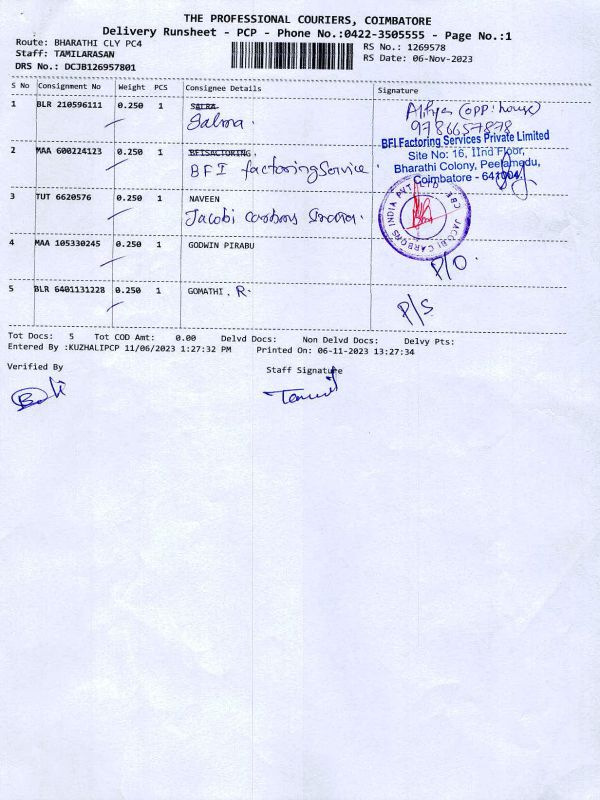 THE PROFESSIONAL COURIERS, COIMBATORE
Delivery Runsheet - PCP - Phone No.:0422-3505555 - Page No.:1
Route: BHARATHI CLY PC4
Staff: TAMILARASAN
DRS No.: DCJB126957801
RS No.: 1269578
RS Date: 06-Nov-2023
S No Consignment No Weight PCS Consignee Details Signature
1 BLR 210596111 0.250 1 SALRA
Salma.
(opp: house)
9786657878
2 MAA 600224123 0.250 1 BFISACTORING.
BFI factoring Service.
BFI Factoring Services Private Limited
Site No: 16, IInd Floor,
Bharathi Colony, Peelamedu,
Coimbatore - 641004.
3 TUT 6620576 0.250 1 NAVEEN
Jacobi carbons
JACOBI CARBONS INDIA PVT LTD CBE
4 MAA 105330245 0.250 1 GODWIN PIRABU
P/O.
5 BLR 6401131228 0.250 1 GOMATHI. R.
P/S
Tot Docs: 5 Tot COD Amt: 0.00 Delvd Docs: Non Delvd Docs: Delvy Pts:
Entered By :KUZHALIPCP 11/06/2023 1:27:32 PM Printed On: 06-11-2023 13:27:34
Verified By
Staff Signature